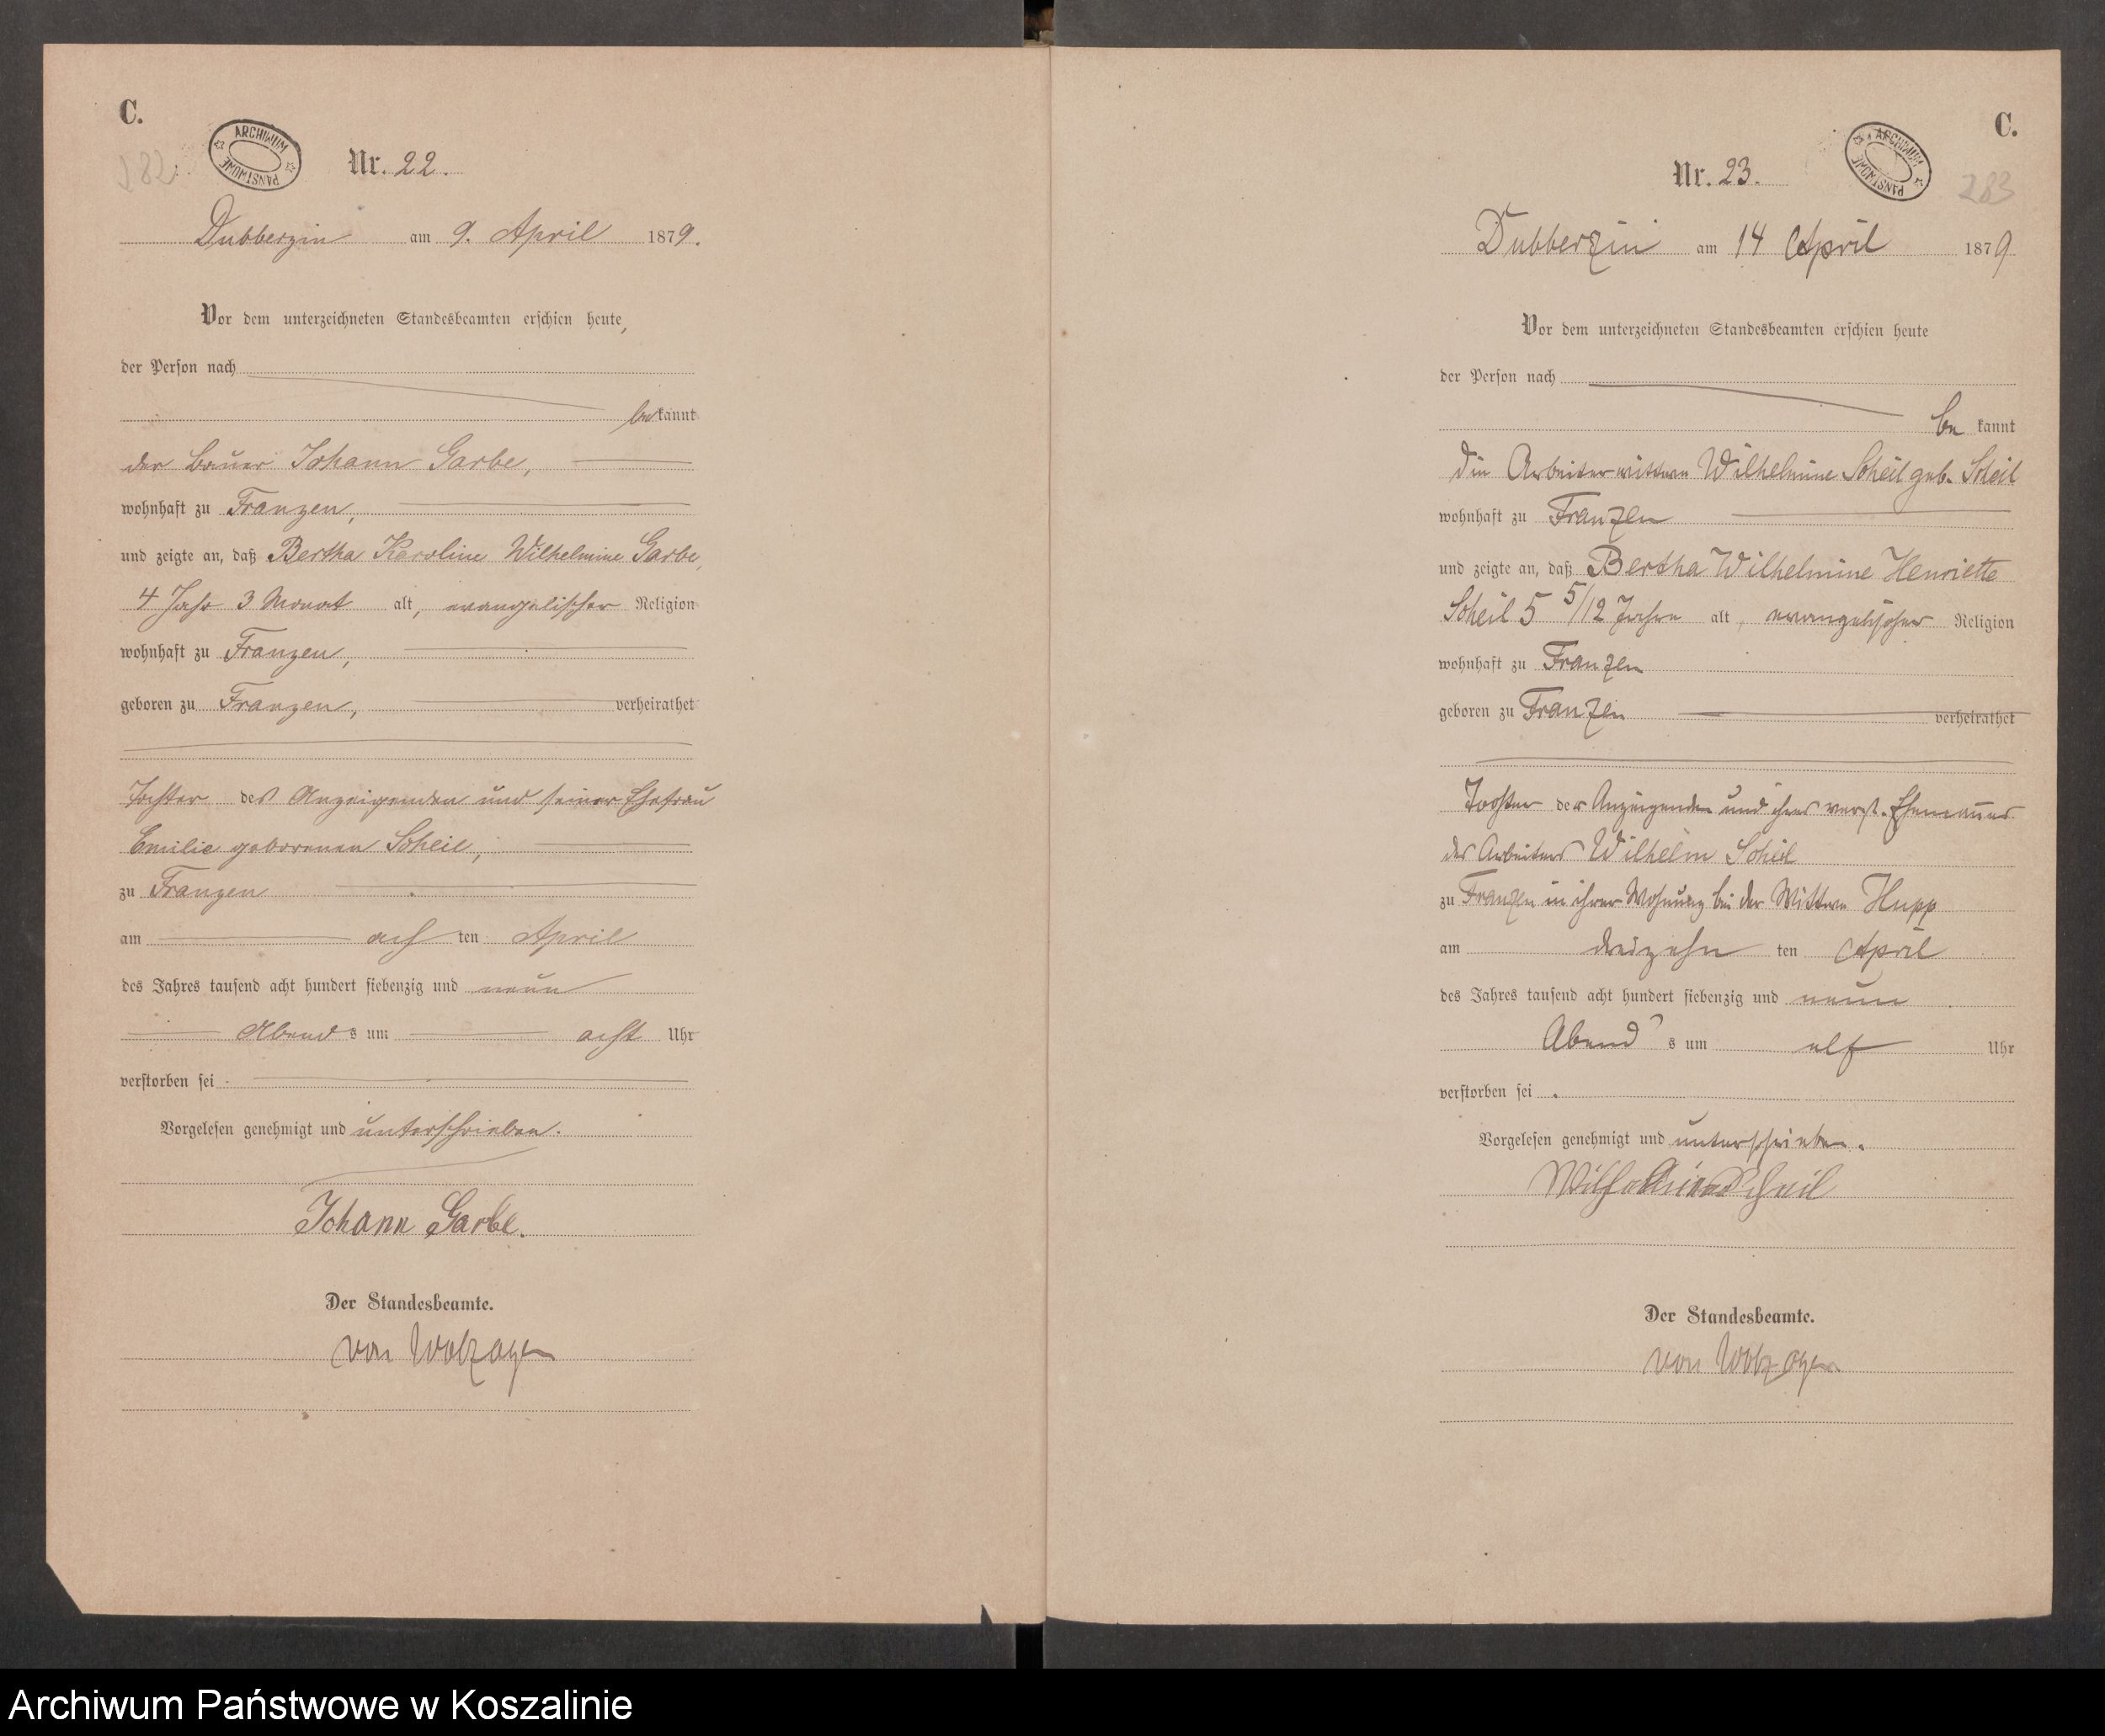 C.
282.
ARCHIWUM PAŃSTWOWE
Nr. 22.
Dubberzin am 9. April 1879.
Vor dem unterzeichneten Standesbeamten erschien heute,
der Person nach
bekannt
der Bauer Johann Garbe,
wohnhaft zu Franzen,
und zeigte an, daß Bertha Karoline Wilhelmine Garbe,
4 Jahr 3 Monat alt, evangelischer Religion
wohnhaft zu Franzen,
geboren zu Franzen, verheirathet
Tochter des Anzeigenden und seiner Ehefrau
Emilie geborenen Scheil,
zu Franzen
am ach ten April
des Jahres tausend acht hundert siebenzig und neun
Abends um acht Uhr
verstorben sei.
Vorgelesen genehmigt und unterschrieben.
Johann Garbe.
Der Standesbeamte.
von Wolzogen
C.
ARCHIWUM PAŃSTWOWE
283
Nr. 23.
Dubberzin am 14 April 1879
Vor dem unterzeichneten Standesbeamten erschien heute
der Person nach
bekannt
die Arbeiterwittwe Wilhelmine Scheil geb. Scheil
wohnhaft zu Franzen
und zeigte an, daß Bertha Wilhelmine Henriette
Scheil 5 5/12 Jahre alt, evangelischer Religion
wohnhaft zu Franzen
geboren zu Franzen verheirathet
Tochter der Anzeigenden und ihres verst. Ehemannes
des Arbeiters Wilhelm Scheil
zu Franzen in ihrer Wohnung bei der Wittwe Hupp
am dreizehn ten April
des Jahres tausend acht hundert siebenzig und neun
Abends um elf Uhr
verstorben sei.
Vorgelesen genehmigt und unterschrieben.
Wilhelmine Scheil
Der Standesbeamte.
von Wolzogen
Archiwum Państwowe w Koszalinie